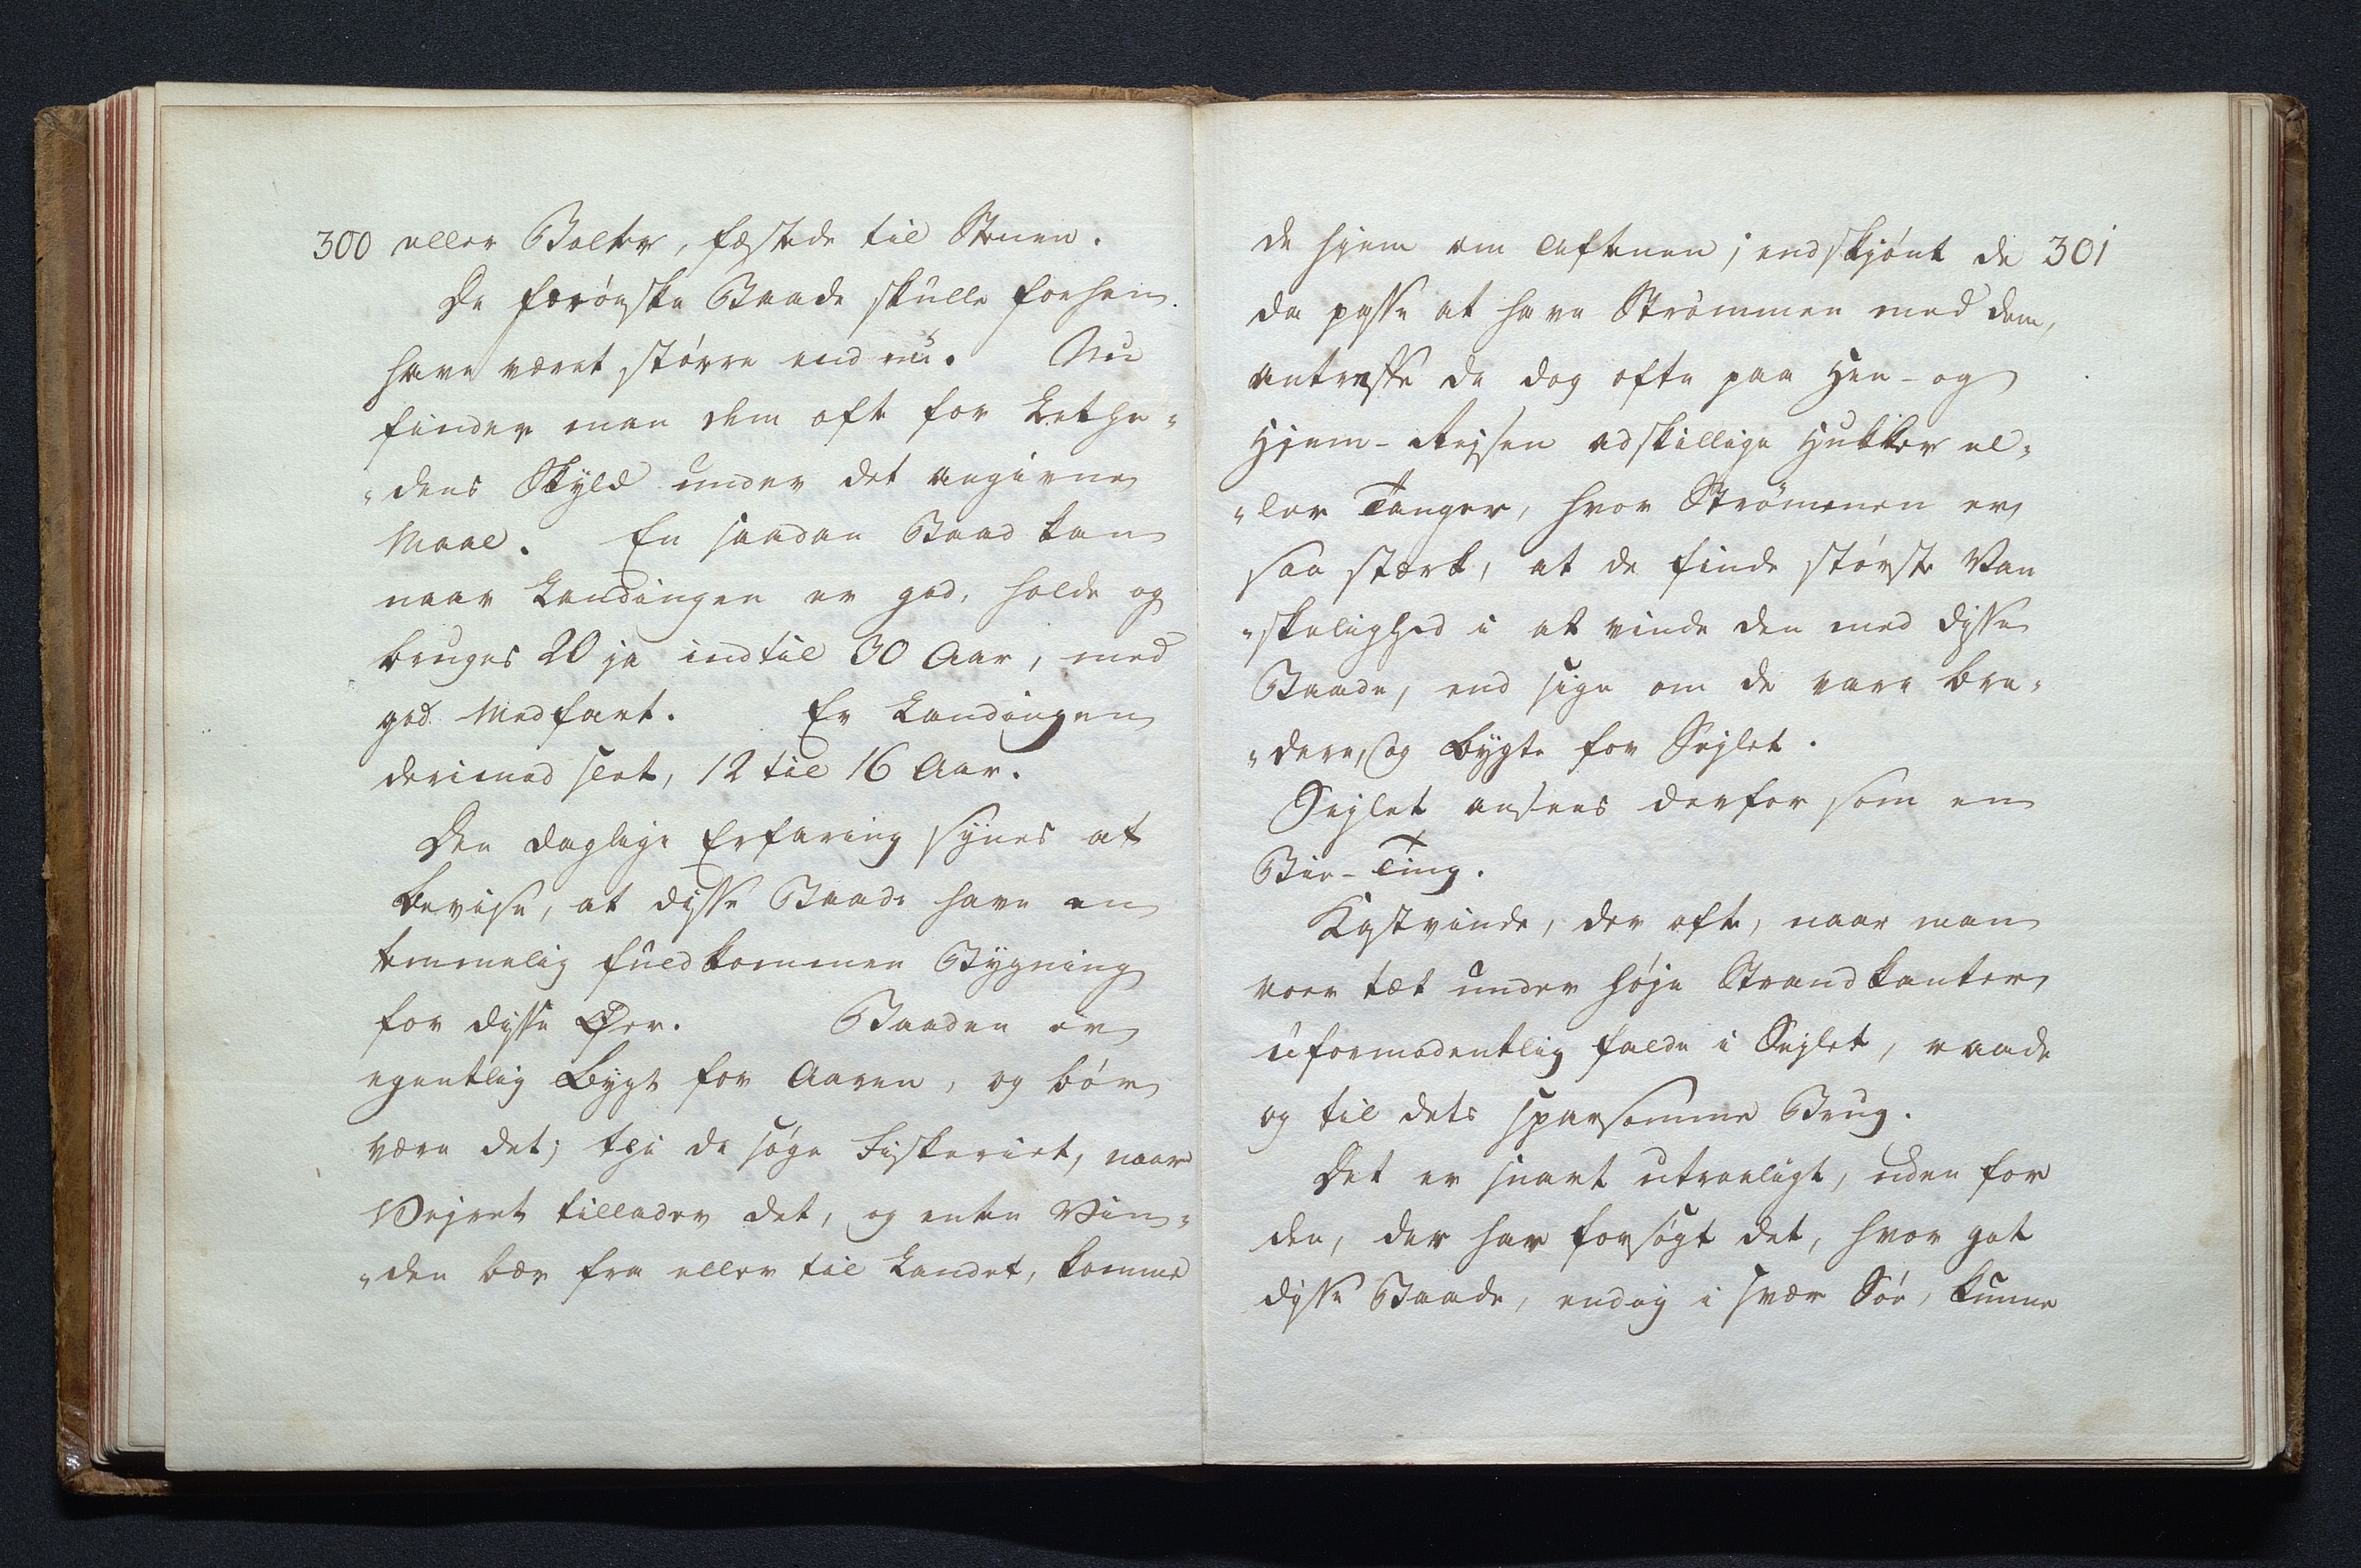 300 eller Bolter, fæstede til Stenen.
De færöiske Baade skulle forhen
have været större end nu. Nu
finder man dem ofte for Lethe-
"dens Skyld under det angivne
Maal. En saadan Baad kan
naar Landingen er god, holde og
bruges 20 ja indtil 30 Aar, med
god Medfart. Er Landingen
derimod slet, 12 til 16 Aar.
Den daglige Erfaring synes at
bevise, at disse Baade have en
temmelig fuldkommen Bygning
for disse Øer. Baaden er
egentlig bygt for Aaren, og bör
være det; thi de söge Fiskeriet, naar
Vejret tillader det, og enten Vin-
"den bær fra eller til Landet, komme
de hjem om Aftenen; endskjönt de 301
da passe at have Strömmen med dem,
antreffe de dog ofte paa Hen- og
Hjem-Rejsen adskillige Hukker el-
"ler Tanger, hvor Strömmen er
saa stærk, at de finde störste Van
"skelighed i at vinde den med disse
Baade, end sige om de vare bre-
"dere, og bygte for Sejlet.
Sejlet ansees derfor som en
Bie-Ting.
Kystvinde, der ofte, naar man
roer tæt under höje Strandkanter,
uformodentlig falde i Sejlet, raade
og til dets sparsomme Brug.
Det er snart utroeligt, uden for
den, der har forsögt det, hvor got
disse Baade, endog i svær Söe, kunne